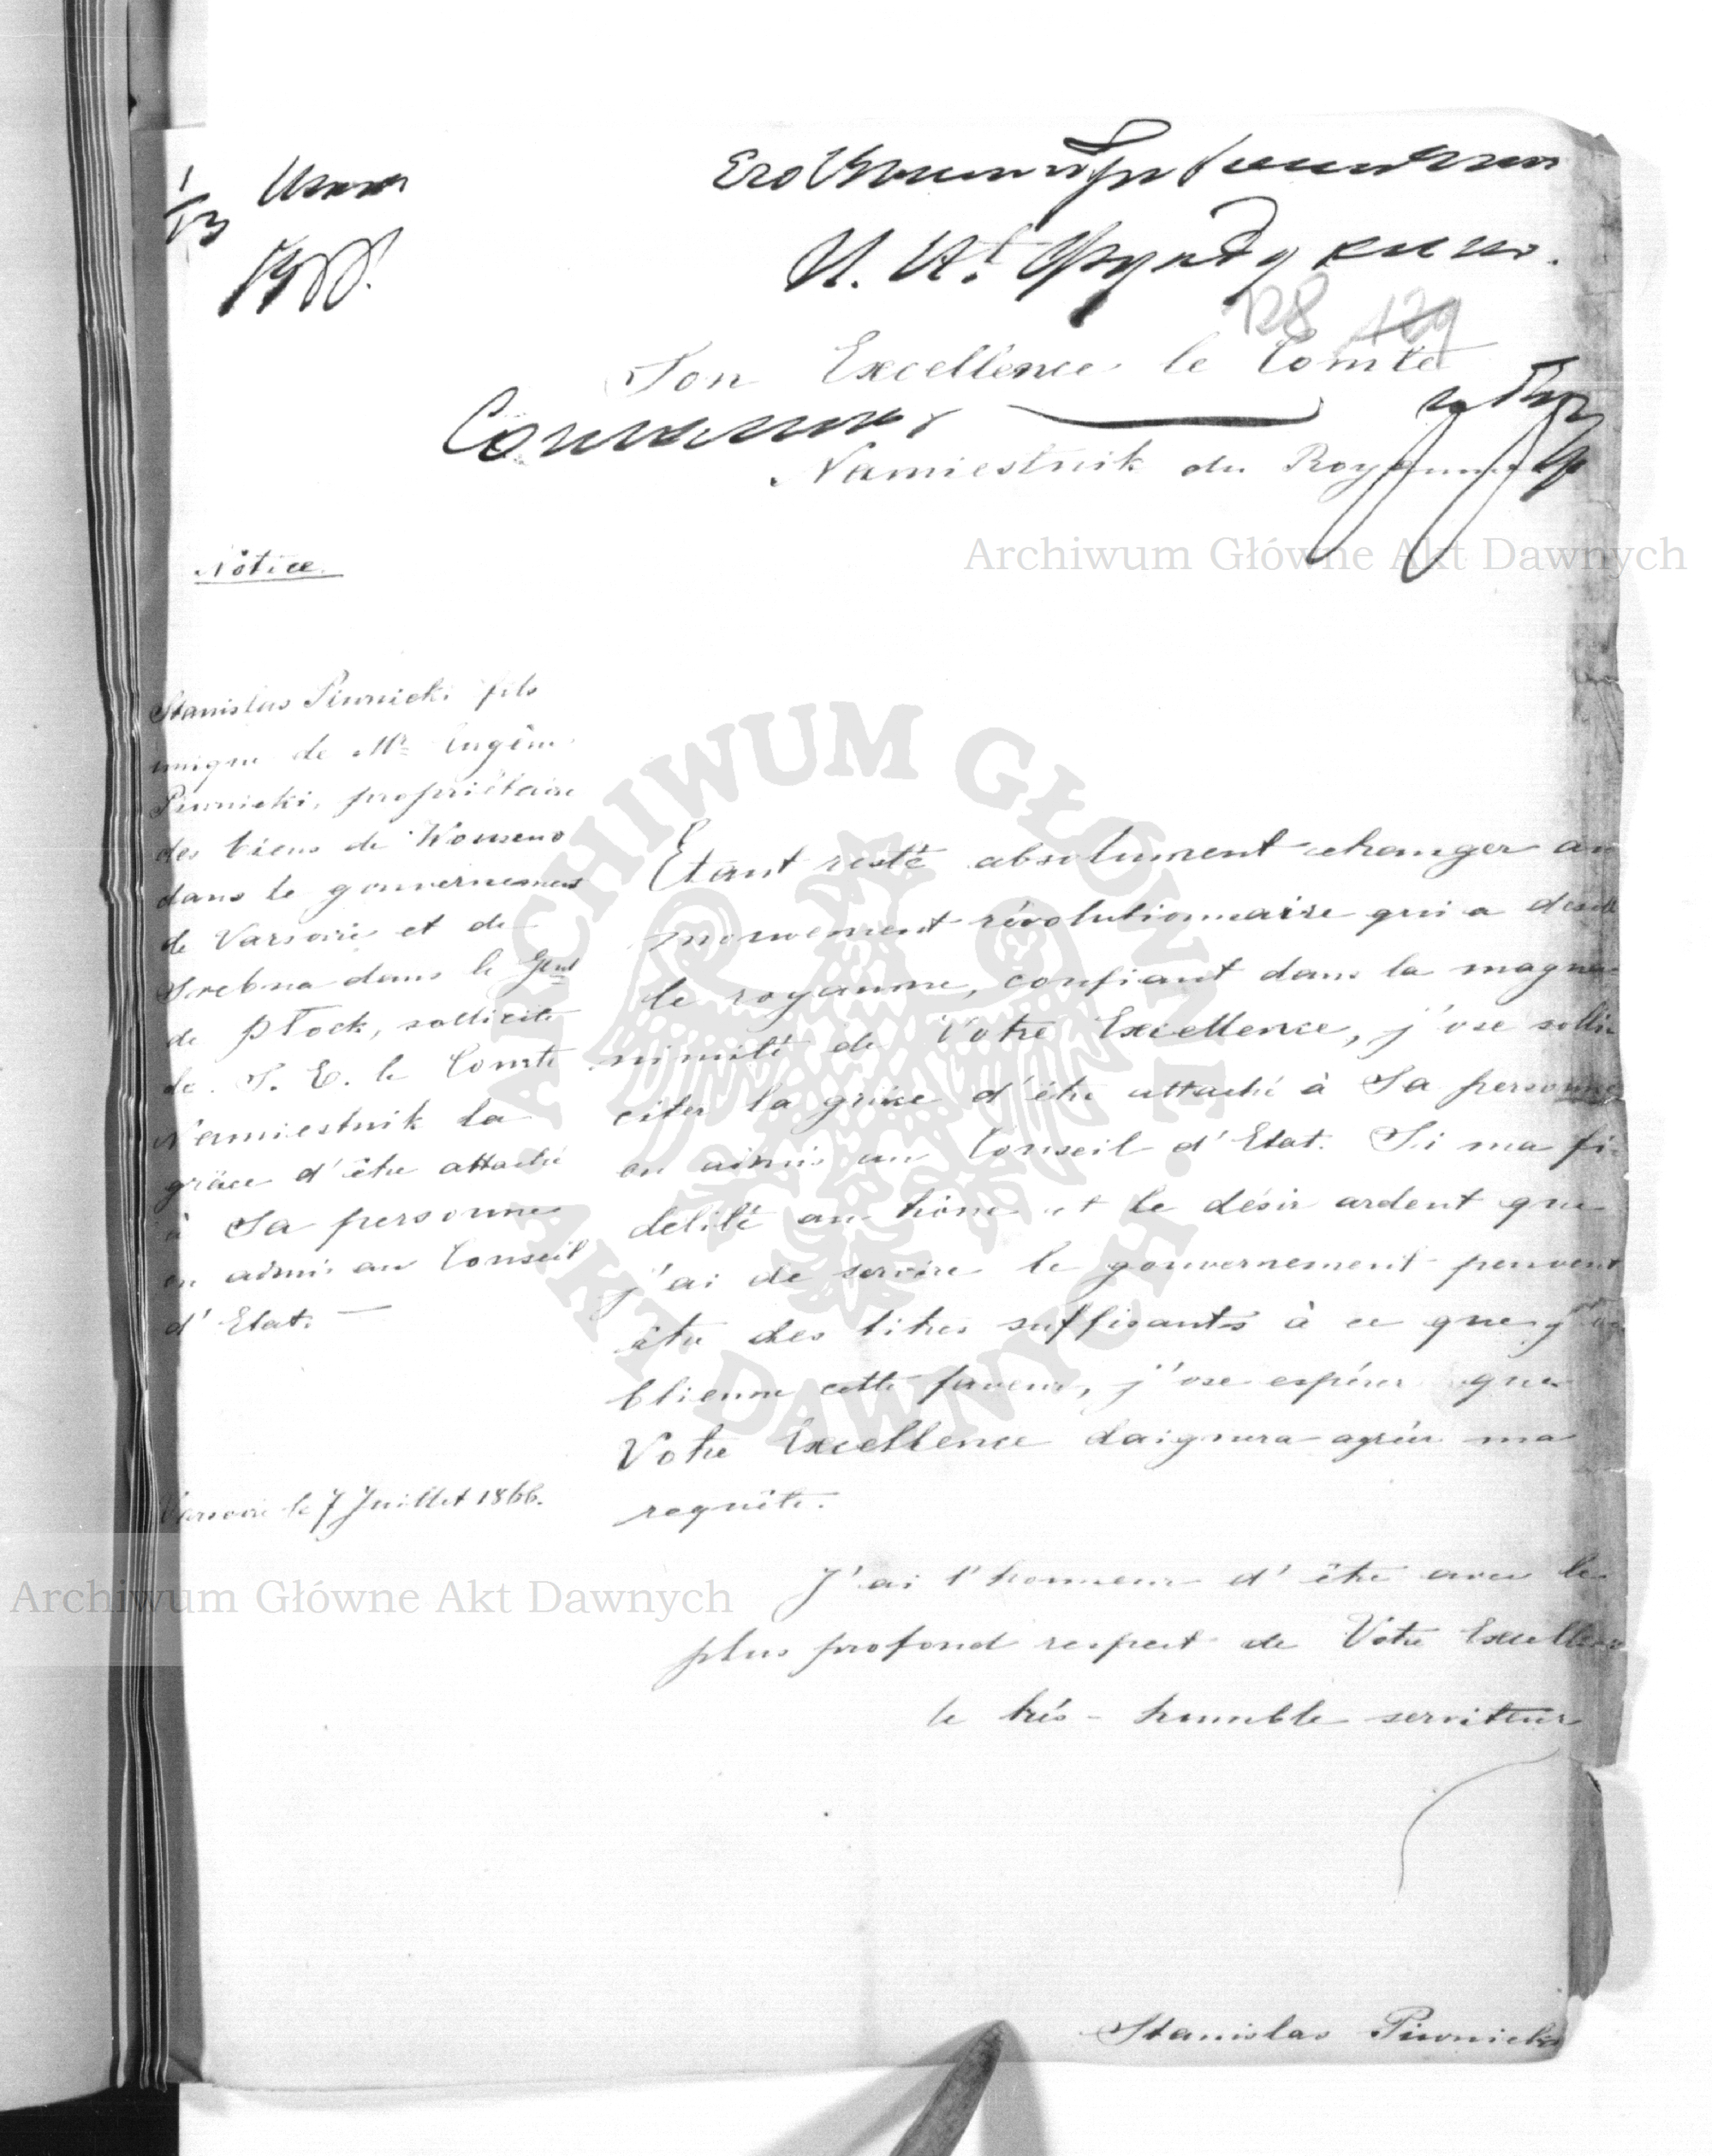 128 129
Son Excellence le Comte
Namiestnik du Royaume
Archiwum Główne Akt Dawnych
Notice
Stanislas Piwnicki fils
unique de Mr Eugène
Piwnicki, propriétaire
des biens de
dans le gouvernement
de Varsovie et de
Srebna dans le Gent
de Płock, sollicite
de S. E. le Comte
Namiestnik la
grâce d'être attaché
à Sa personne
ou admis au Conseil
d'Etat. —
Varsovie le 7 Juillet 1866.
Etant resté absolument etranger au
mouvement révolutionnaire qui a
le royaume, confiant dans la magna-
nimité de Votre Excellence, j'ose solli-
citer la grâce d'être attaché à Sa personne
ou admis au Conseil d'Etat. Si ma fi-
delité au trône et le désir ardent que
j'ai de servire le gouvernement peuvent
être des titres suffisants à ce que j'ob-
tienne cette faveur, j'ose espérer que
Votre Excellence daignera agréer ma
requête.
J'ai l'honneur d'être avec le
plus profond respect de Votre Excellence
le très-humble serviteur
Stanislas Piwnicki
Archiwum Główne Akt Dawnych
ARCHIWUM GŁÓWNE
AKT DAWNYCH